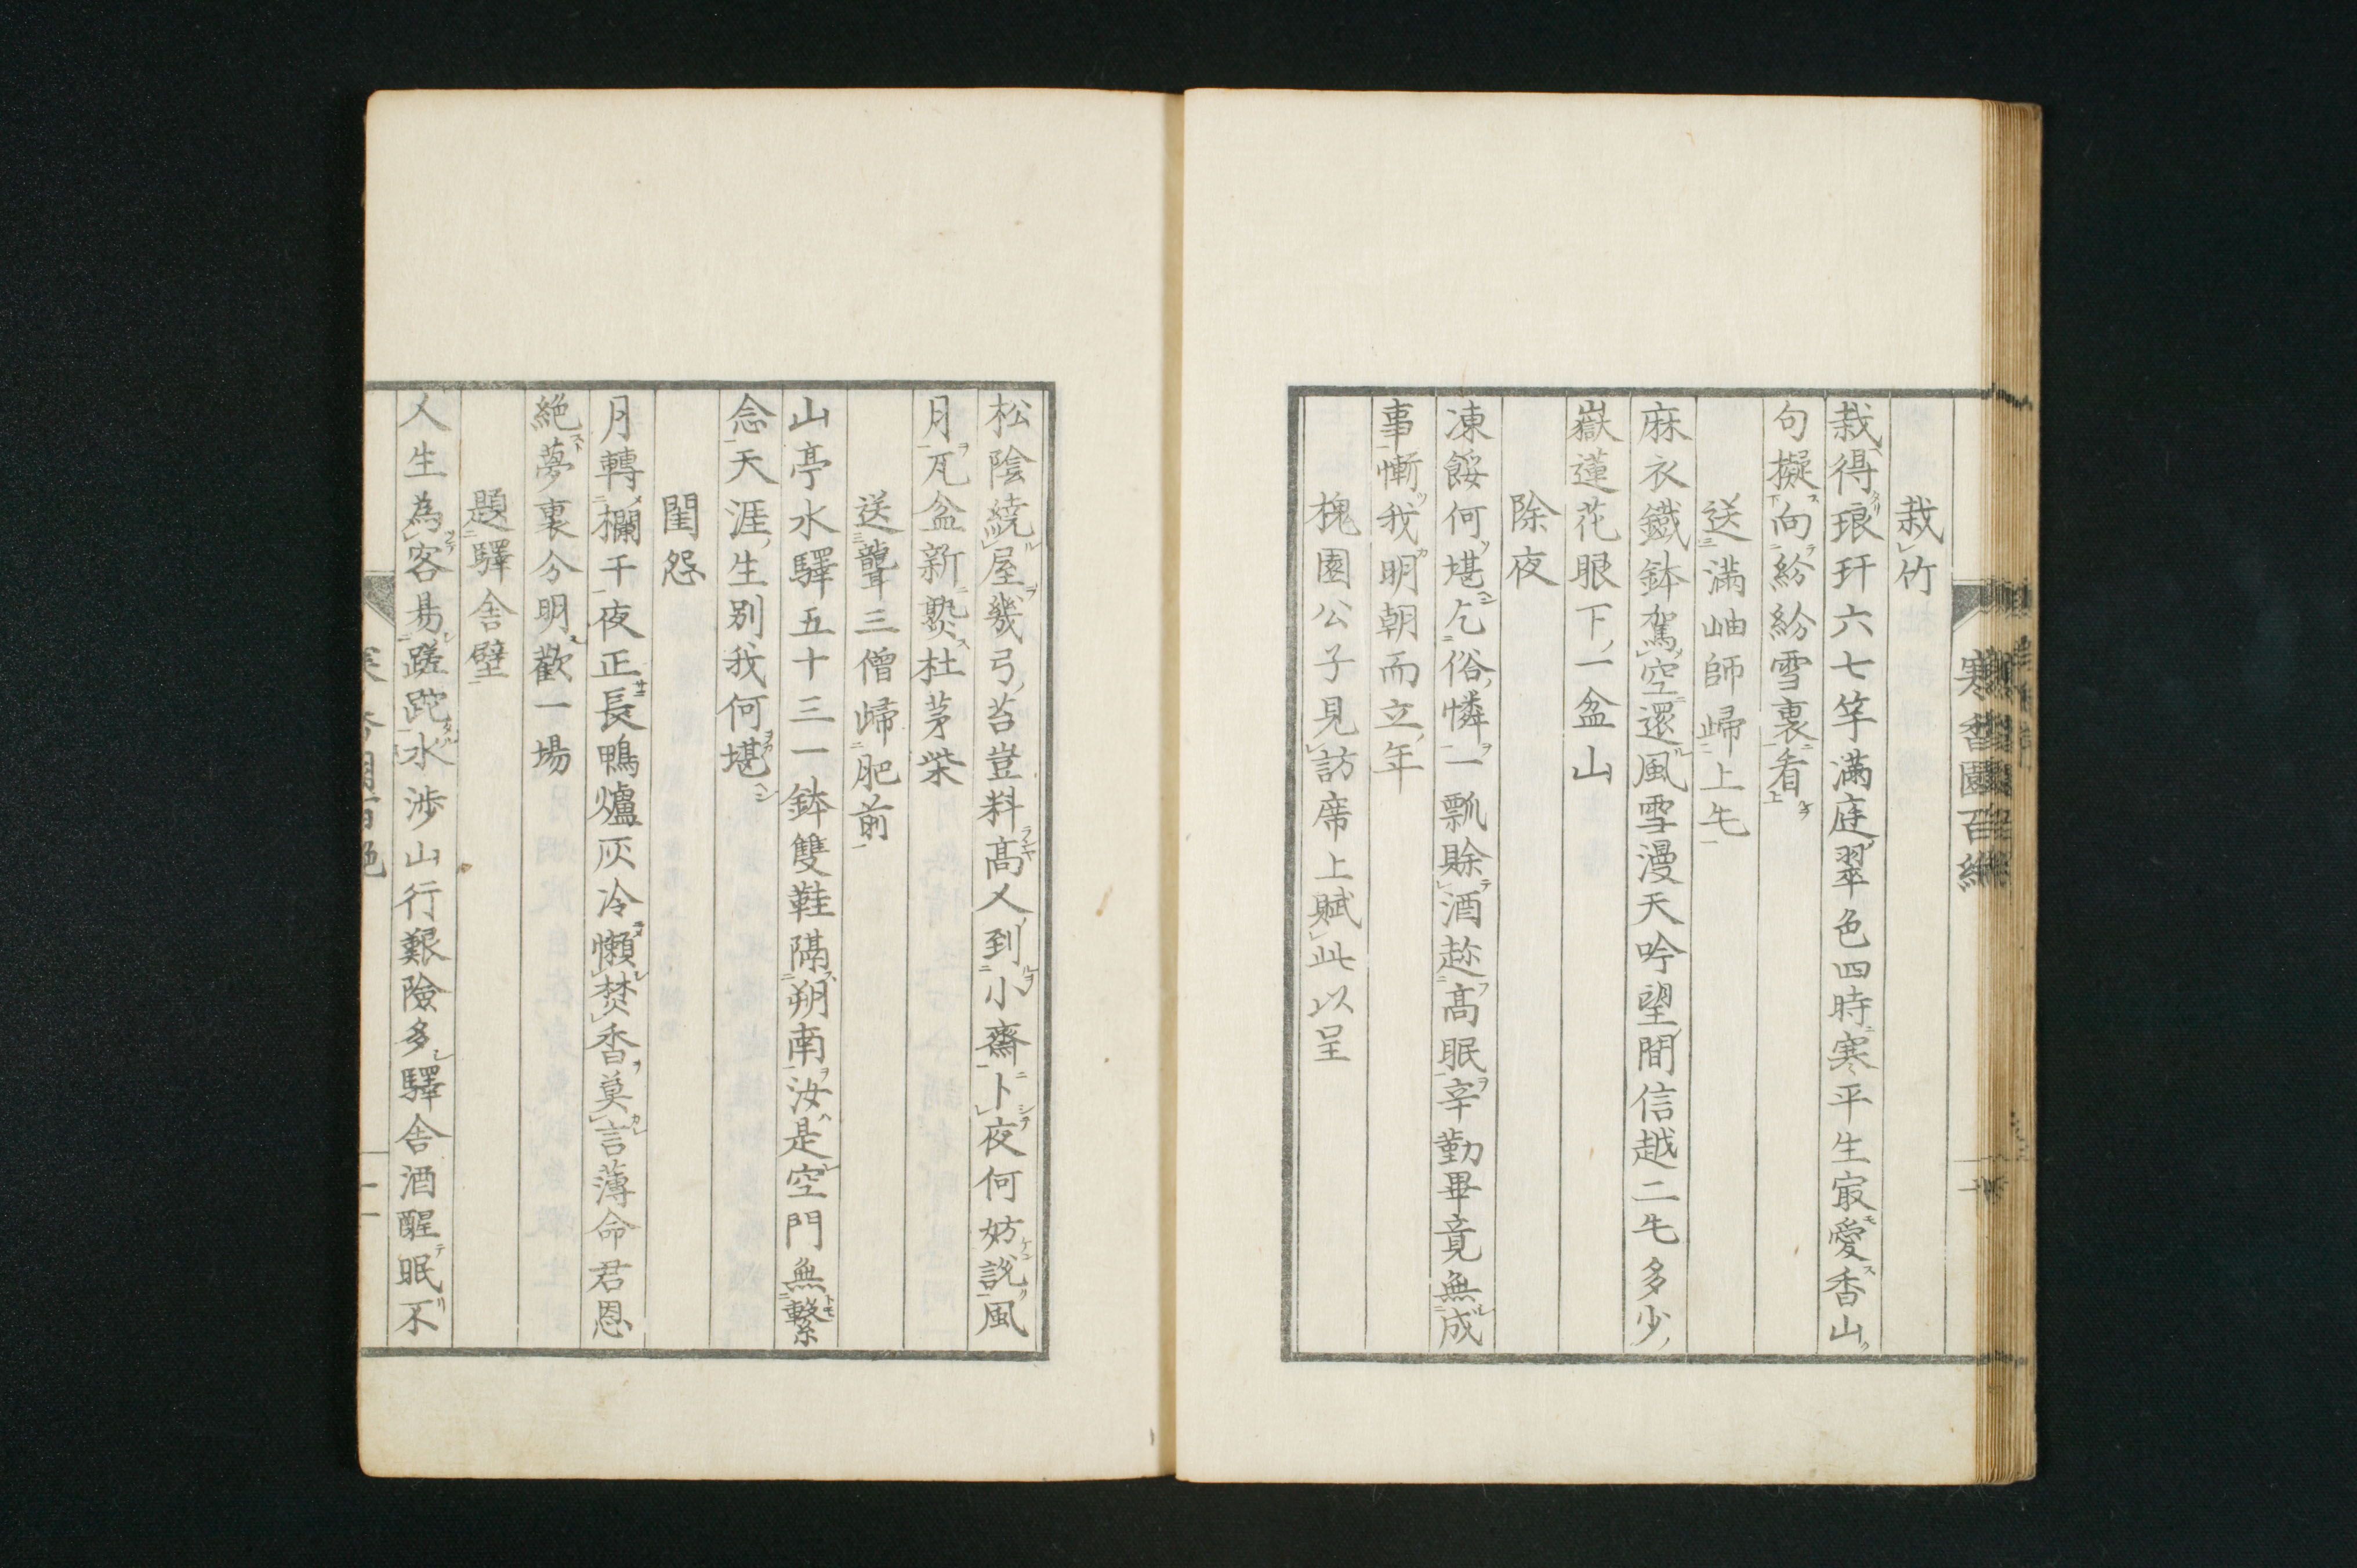 栽竹
栽得琅玕六七竿滿庭翠色四時寒平生㝡愛香山
句擬向紛紛雪裏看
送滿岫師歸上毛
麻衣鐵鉢駕空還風雪漫天吟望間信越二毛多少
嶽蓮花眼下一盆山
除夜
凍餒何堪乞俗憐一瓢賖酒趂高眠辛勤畢竟無成
事慚我明朝而立年
槐園公子見訪席上賦此以呈
寒香園百絶
松陰繞屋幾弓苔豈料高人到小齋卜夜何妨說風
月瓦盆新爇杜茅柴
送聾三僧歸肥前
山亭水驛五十三一鉢雙鞋隔朔南汝是空門無繫
念天涯生別我何堪
閨怨
月轉欄干夜正長鴨爐灰冷懶焚香莫言薄命君恩
絶夢裏分明歡一場
題驛舎壁
人生為客易蹉跎水渉山行艱險多驛舎酒醒眠不